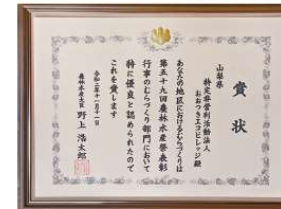 賞状
山梨県
特定非営利活動法人
おおつきエコビレッジ殿
あなたの地区におけるむらづくりは
第五十九回農林水産祭表彰
行事のむらづくり部門において
特に優良と認められたので
これを賞します
令和二年十一月十一日
農林水産大臣 野上浩太郎